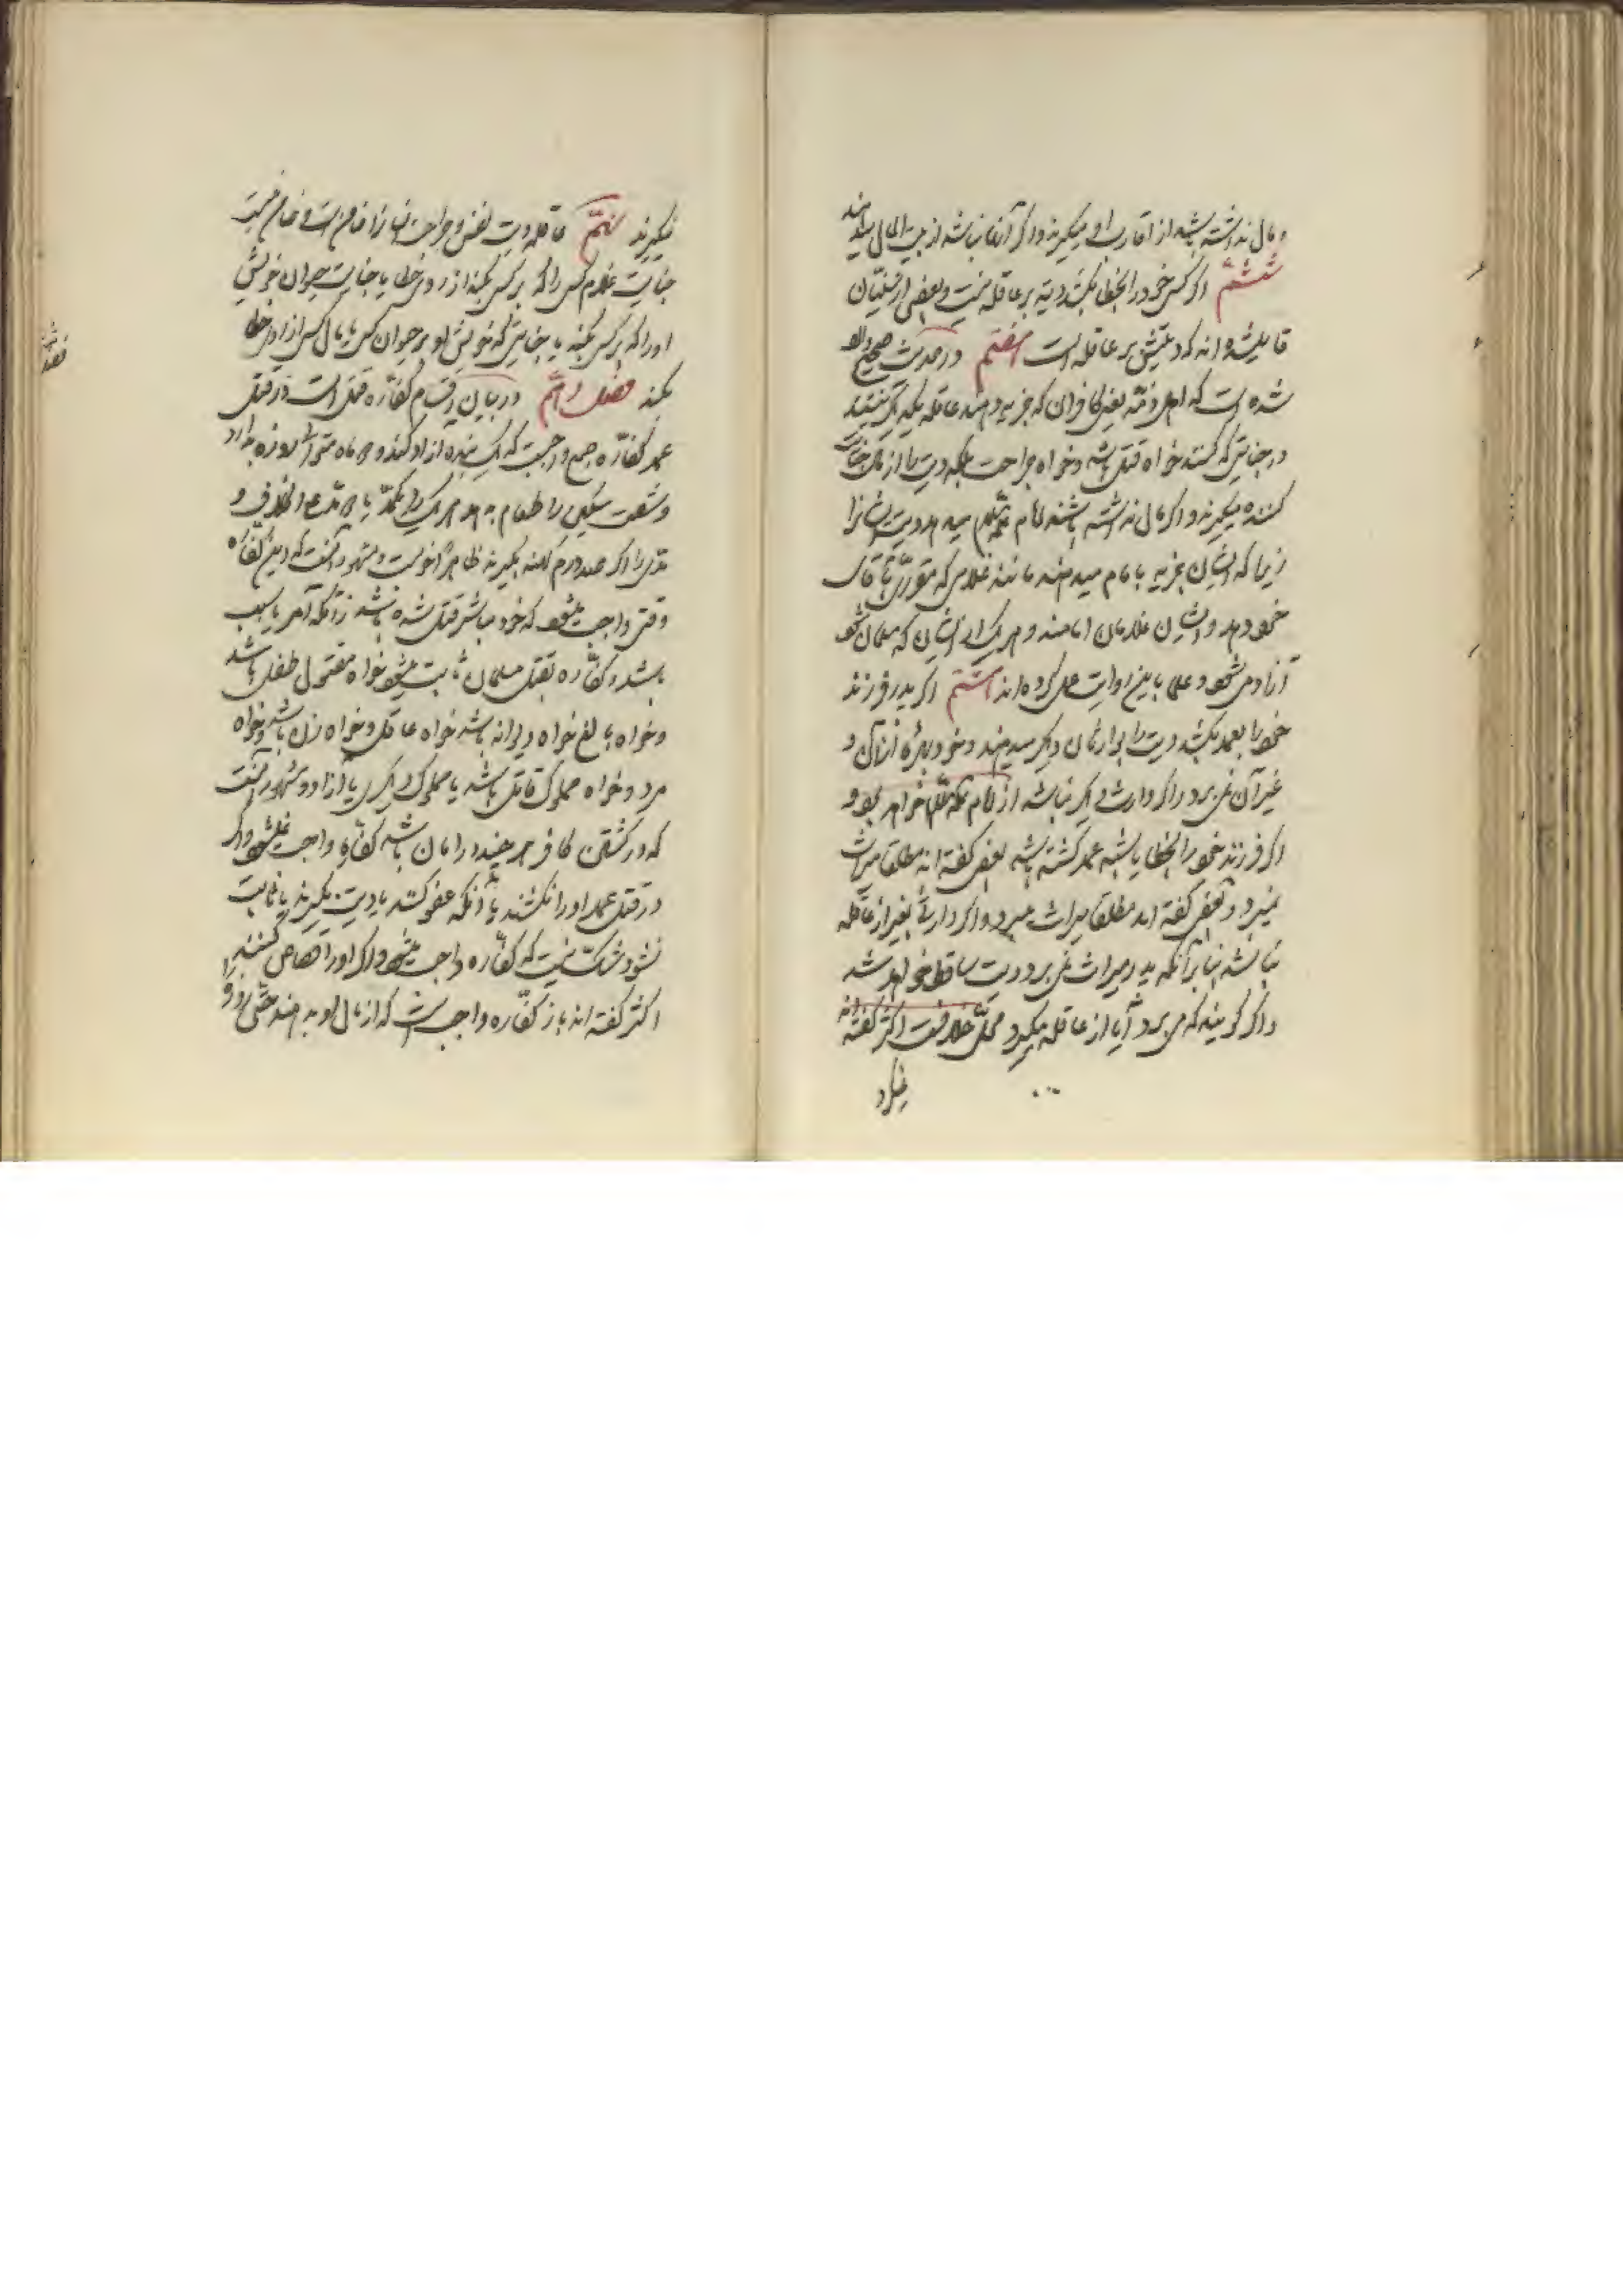 و مال نداشته باشد از اقارب او میگیرند و اگر آنها نباشد از بیت المال میدهند
ششم اگر کسی خود را بخطا بکشد دیه بر عاقله نیست و بعضی از سنیان
قایل شده اند که دیتش بر عاقله است هفتم در حدیث صحیح وارد
شده است که اهل ذمه یعنی کافران که جزیه میدهند عاقله یکدیگر نیستند
در جنایتی که کنند خواه قتل باشد و خواه جراحت بلکه دیت را از مال جنایت
کننده میگیرند و اگر مال نداشته باشند امام میدهد دیت ایشانرا
زیرا که ایشان جزیه بامام میدهند مانند غلامی که مقرری بآقای
خود دهد و ایشان غلامان امامند و هر یک از ایشان که مسلمان شود
آزاد می شود و علما باین روایت عمل کرده اند هشتم اگر پدر فرزند
خود را بعمد بکشد دیت را بوارثان دیگر میدهند و خود بهره از آن و
غیر آن نمی برد و اگر وارث دیگر نباشد از امام خواهد بود و
اگر فرزند خود را بخطا یا شبه عمد کشته باشد بعضی گفته اند مطلقا میراث
نمیبرد و بعضی گفته اند مطلقا میراث میبرد و اگر وارثی بغیر از عاقله
نباشد بنا بر آنکه پدر میراث نمی برد دیت ساقط خواهد شد
و اگر گویند که می برد آیا از عاقله میگیرد محل خلافست اکثر گفته اند
نمیگیرد
نمیگیرند نهم عاقله دیت نفس و جراحت انسان را ضامن است و ضامن نیست
جنایت غلام کسی را که بر کسی بکند از روی خطا یا جنایت حیوان خویش
او را که بر کسی بکند یا جنایتی که خویش او بر حیوان کسی یا مال کسی از روی خطا
بکند فصل دهم در بیان اقسام کفاره قتل است در قتل
عمد کفاره جمع واجبست که یک بنده آزاد کند و دو ماه متوالی روزه بدارد
و شصت مسکین را طعام بدهد هر یک را یکمد یا دو مد علی الخلاف و
مدی را اگر صد درم کهنه بگیرند ظاهرا خوبست و مشهور آنست که این کفاره
وقتی واجب میشود که خود مباشر قتل شده باشد نه آنکه آمر یا سبب
باشد و کفاره بقتل مسلمان ثابت میشود خواه مقتول طفل باشد
و خواه بالغ خواه دیوانه باشد خواه عاقل و خواه زن باشد و خواه
مرد و خواه مملوک قاتل باشد یا مملوک دیگری یا آزاد و مشهور آنست
که در کشتن کافر هر چند در امان باشد کفاره واجب نمیشود و اگر
در قتل عمد او را نکشند یا آنکه عفو کنند یا دیت بگیرند یا ثابت
نشود شک نیست که کفاره واجب میشود و اگر او را قصاص کنند
اکثر گفته اند باز کفاره واجب است که از مال او بدهند حتی روزه را
فصل دهم